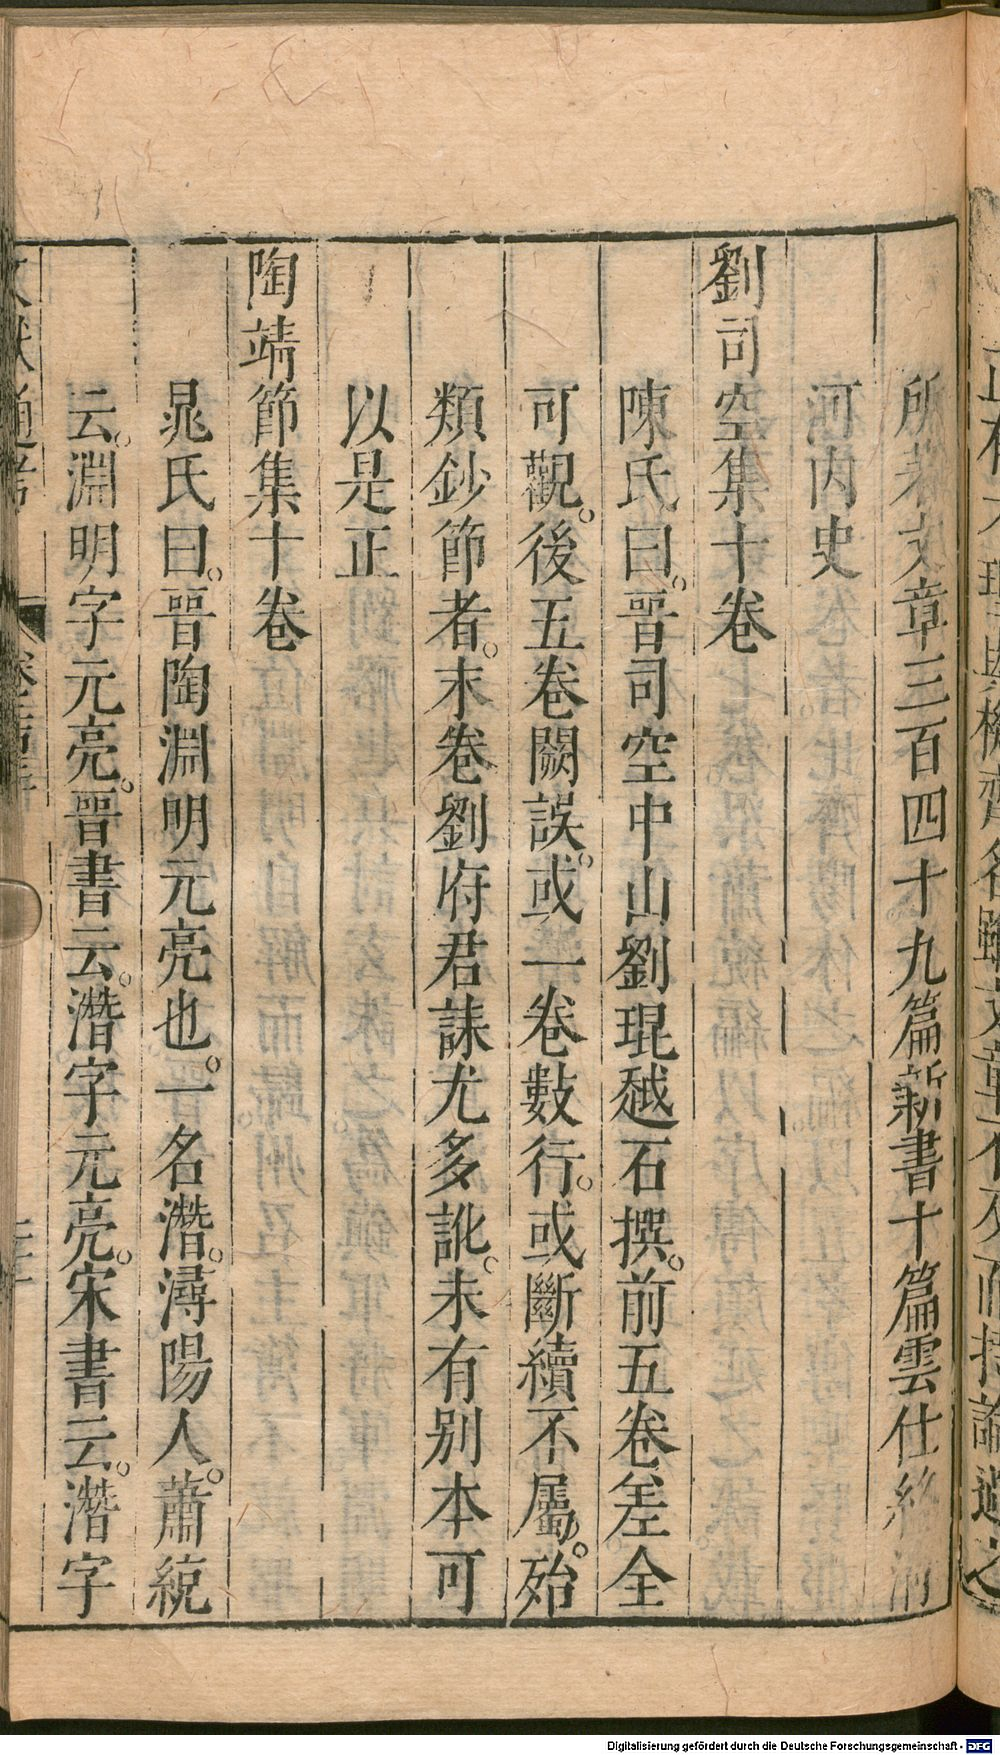 所著文章三百四十九篇新書十篇雲仕終清
河内史
劉司空集十卷
陳氏曰。晉司空中山劉琨越石撰。前五卷差全
可觀。後五卷闕誤。或一卷數行。或斷續不屬。殆
類鈔節者。末卷劉府君誄尤多訛。未有别本可
以是正
陶靖節集十卷
晁氏曰。晉陶淵明元亮也。一名濳。潯陽人。蕭統
云。淵明字元亮。晉書云。濳字元亮。宋書云。濳字
Digitalisierung gefördert durch die Deutsche Forschungsgemeinschaft - DFG